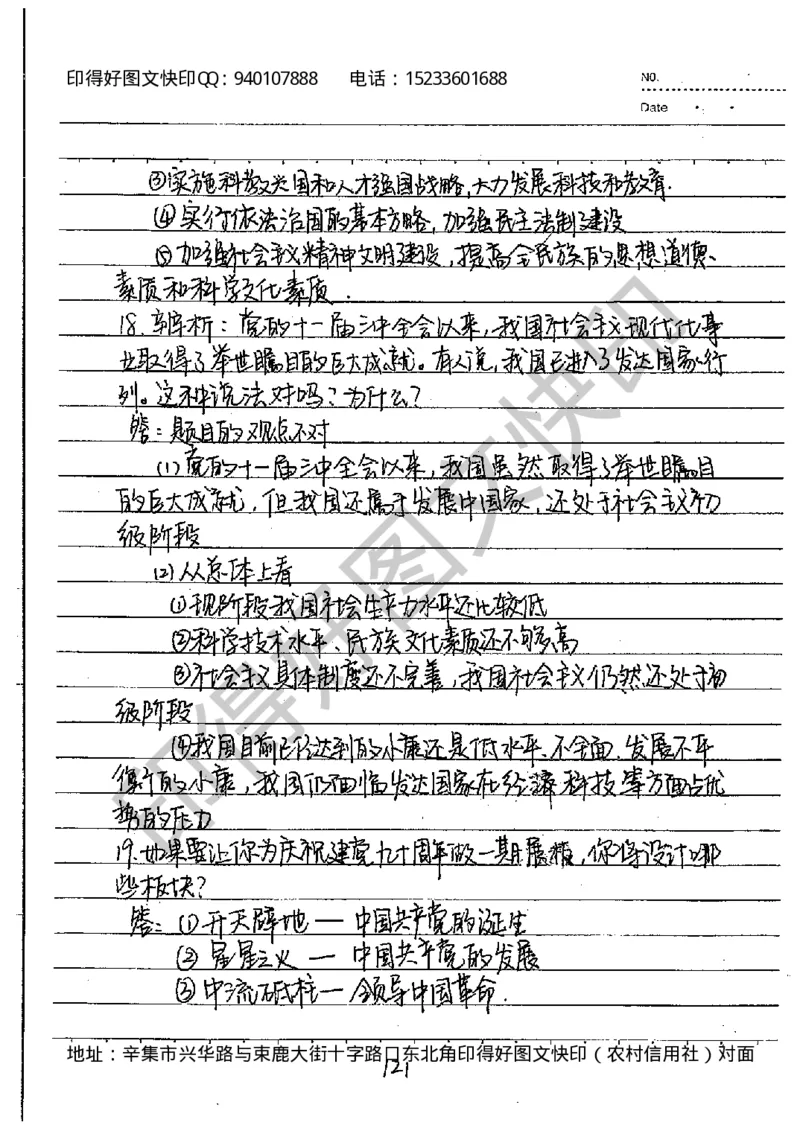 印得好图文快印QQ：940107888 电话：15233601688
No.
Date
③实施科教兴国和人才强国战略,大力发展科技和教育.
④实行依法治国的基本方略,加强民主法制建设
⑤加强社会主义精神文明建设,提高全民族的思想道德、
素质和科学文化素质.
18.辨析：党的十一届三中全会以来,我国社会主义现代化事
业取得了举世瞩目的巨大成就。有人说,我国已进入了发达国家行
列。这种说法对吗？为什么？
答：题目的观点不对
(1)党的十一届三中全会以来,我国虽然取得了举世瞩目
的巨大成就,但我国还属于发展中国家,还处于社会主义初
级阶段
(2)从总体上看
①现阶段我国社会生产力水平还比较低
②科学技术水平、民族文化素质还不够高
③社会主义具体制度还不完善,我国社会主义仍然还处于初
级阶段
④我国目前已经达到的小康还是低水平、不全面、发展不平
衡的小康,我国仍面临发达国家在经济科技等方面占优
势的压力
19.如果要让你为庆祝建党九十周年做一期展板,你将设计哪
些板块？
答：(1)开天辟地—中国共产党的诞生
(2)星星之火—中国共产党的发展
(3)中流砥柱—领导中国革命.
地址：辛集市兴华路与束鹿大街十字路口东北角印得好图文快印（农村信用社）对面
121
印得好图文快印